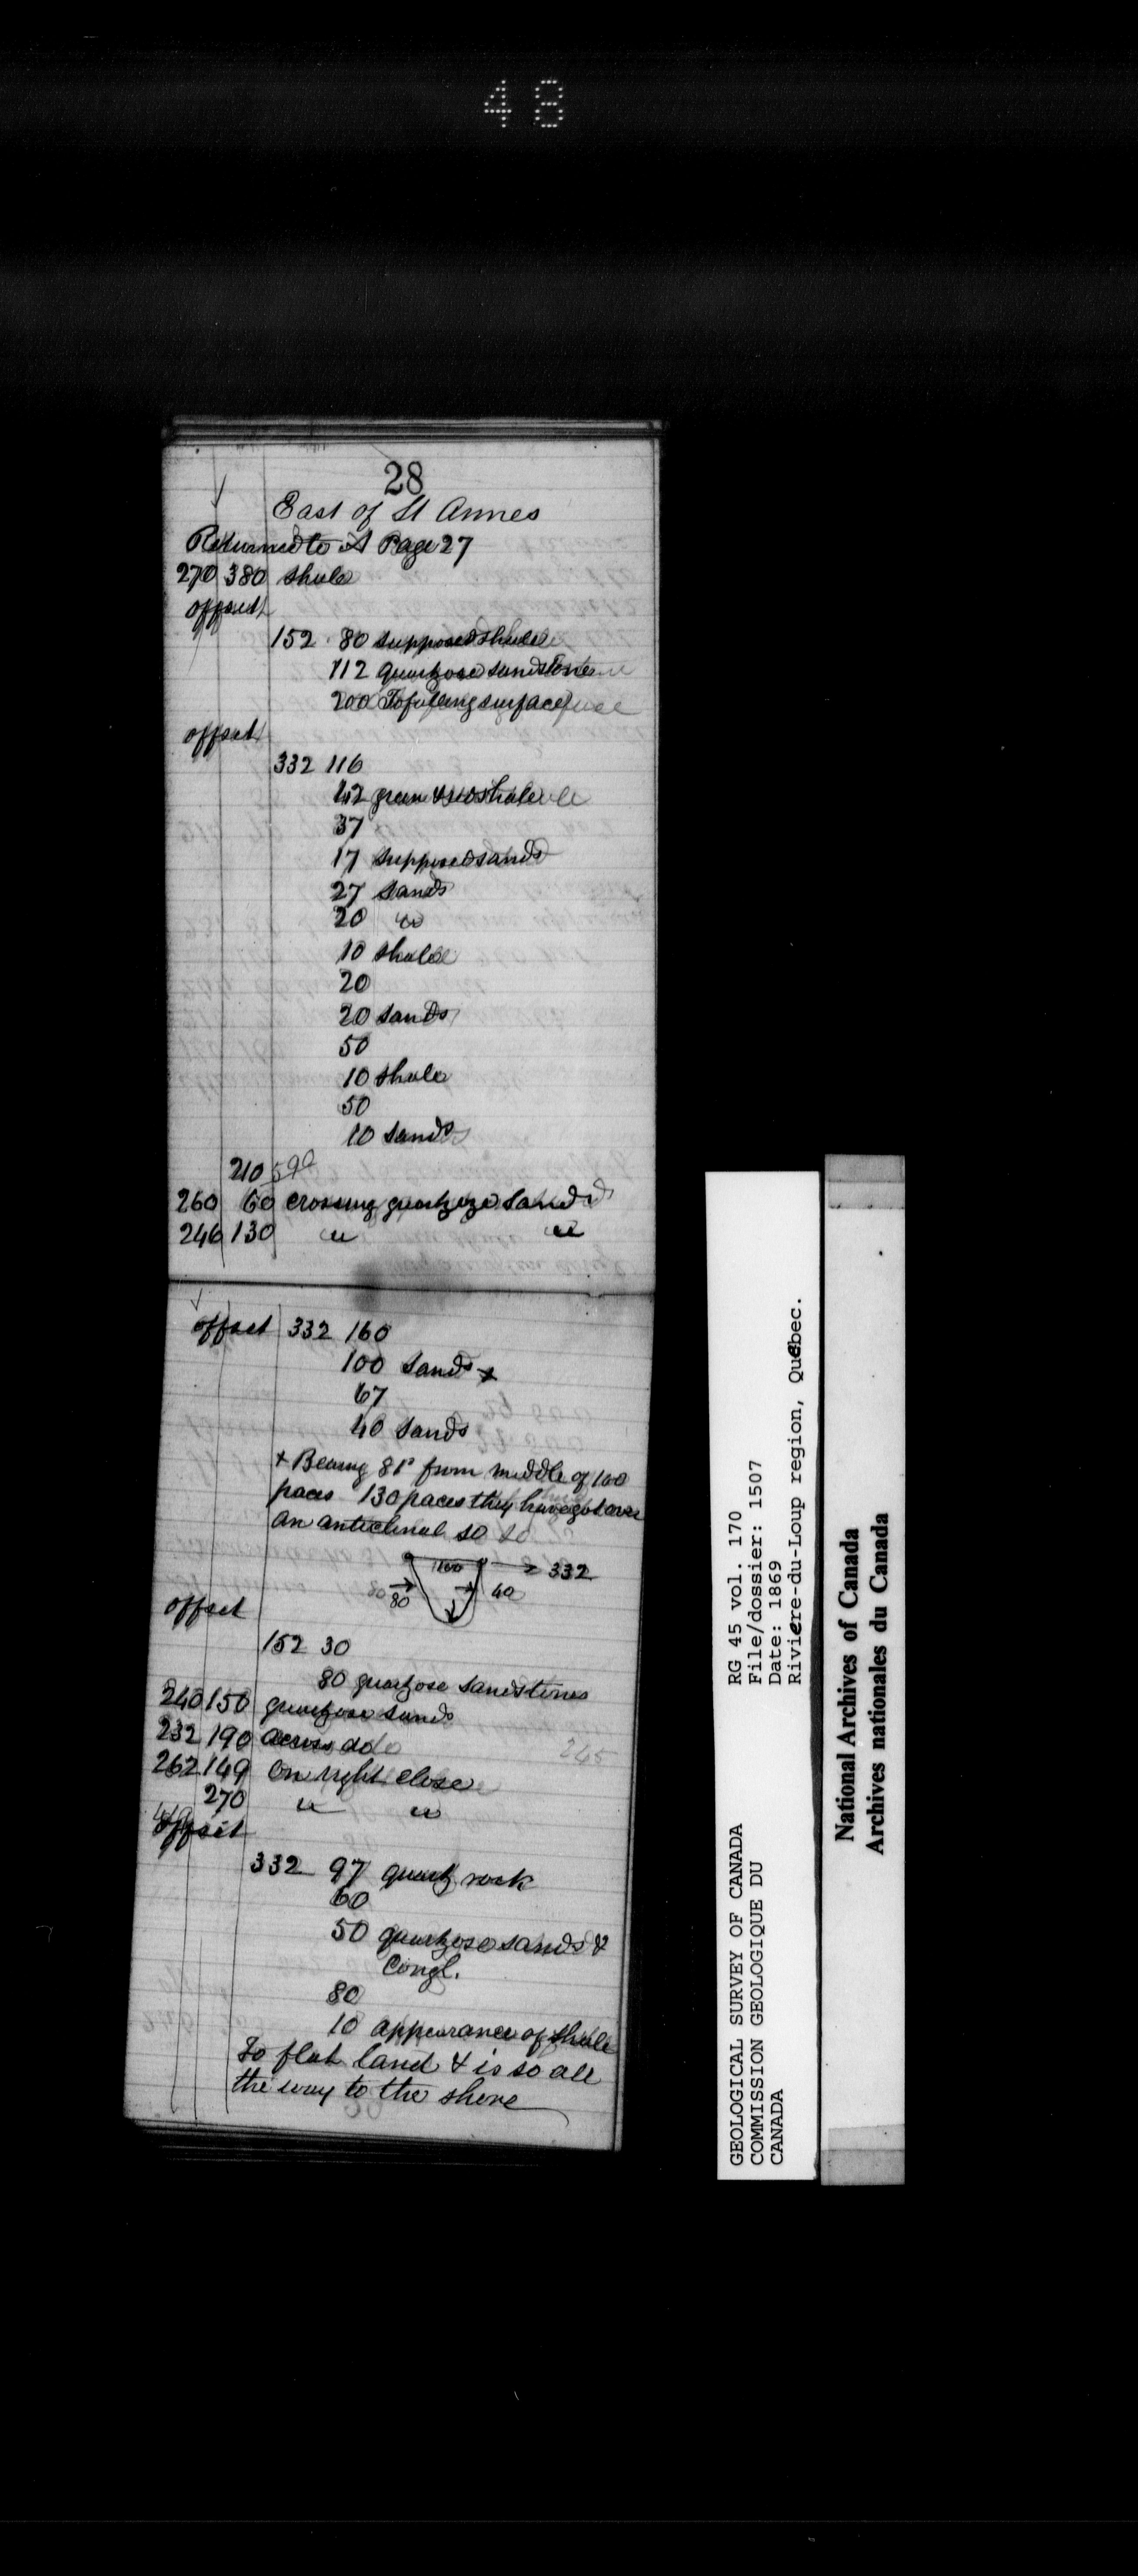 48
28
East of St Annes
Returned to A Page 27
270 380 shale
offset
152 80 supposed shale
112 quartzose sandstone
200 To falling surface
offset
332 116
42 green & red shale
37
17 supposed sands
27 sands
20 "
10 shale
20
20 sands
50
10 shale
50
10 sands
210 590
260 60 crossing quartzoze sands
246 130 " "
offset 332 160
100 sands x
67
40 sands
x Bearing 81° from middle of 100
paces 130 paces they have got over
an anticlinal so
100 → 332
80 40
offset
152 30
80 quartzose sandstones
240 150 quartzose sands
232 190 across do 245
262 149 on right close
270 " "
offset
332 97 quartz rock
60
50 quartzose sands &
Congl.
80
10 appearance of shale
To flat land & is so all
the way to the shore
GEOLOGICAL SURVEY OF CANADA RG 45 vol. 170
COMMISSION GEOLOGIQUE DU File/dossier: 1507
CANADA Date: 1869
Rivière-du-Loup region, Québec.
National Archives of Canada
Archives nationales du Canada